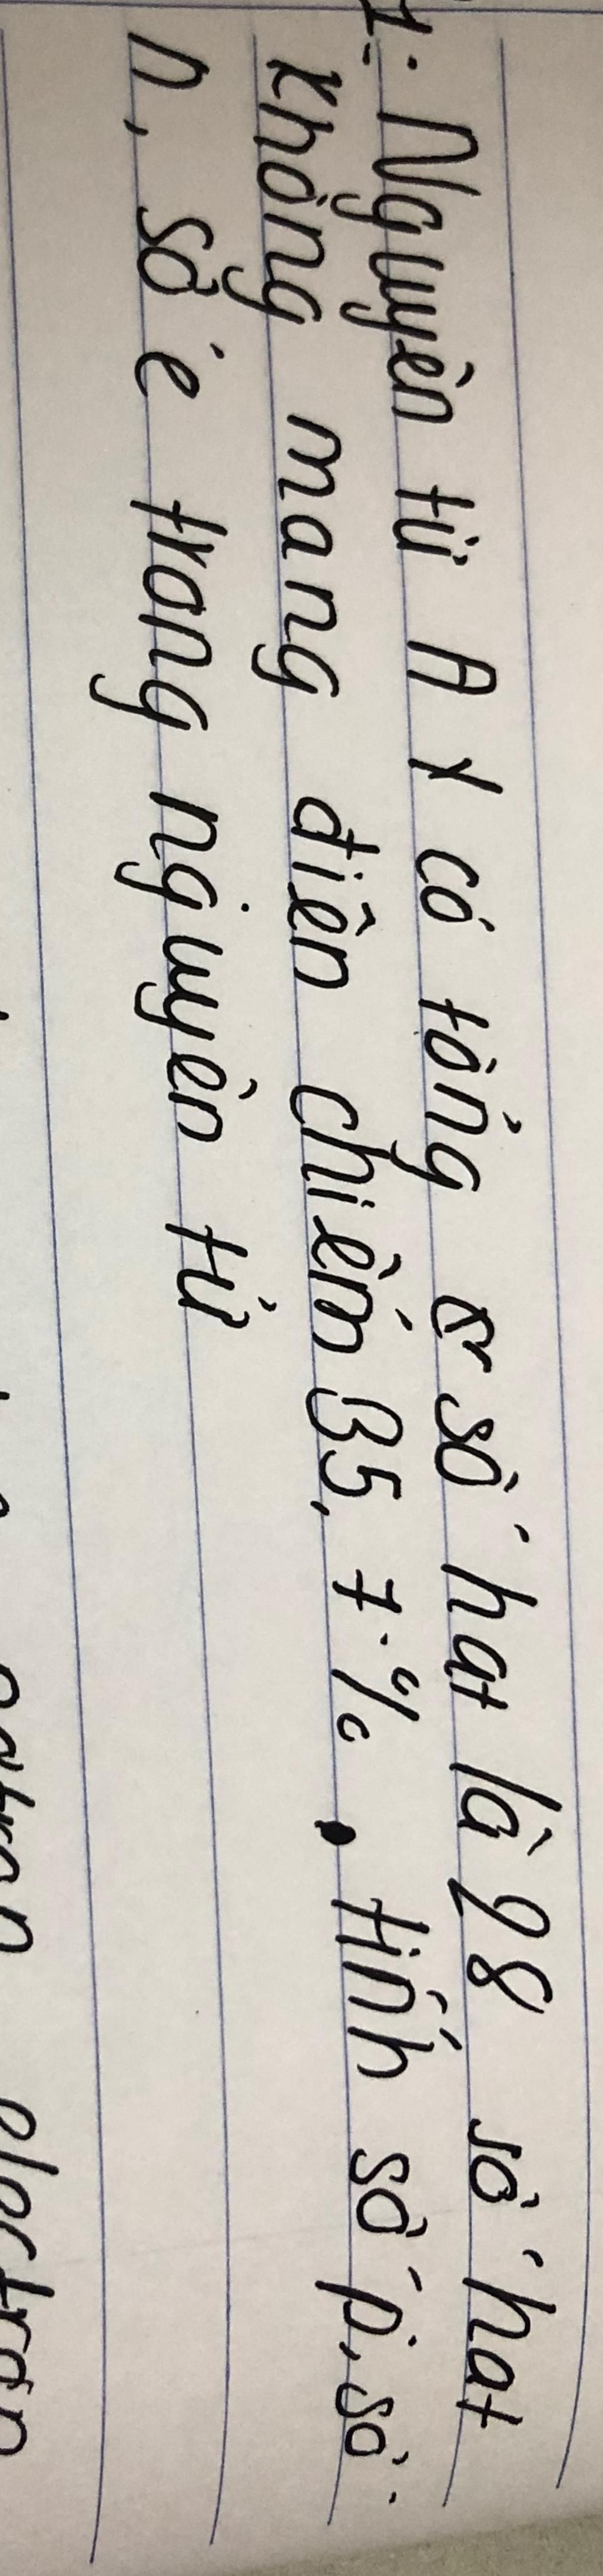 1: Nguyên tử A Y có tổng số hạt là 28 số hạt
không mang điện chiếm 35,7%. tính số p, số
n, số e trong nguyên tử
electron